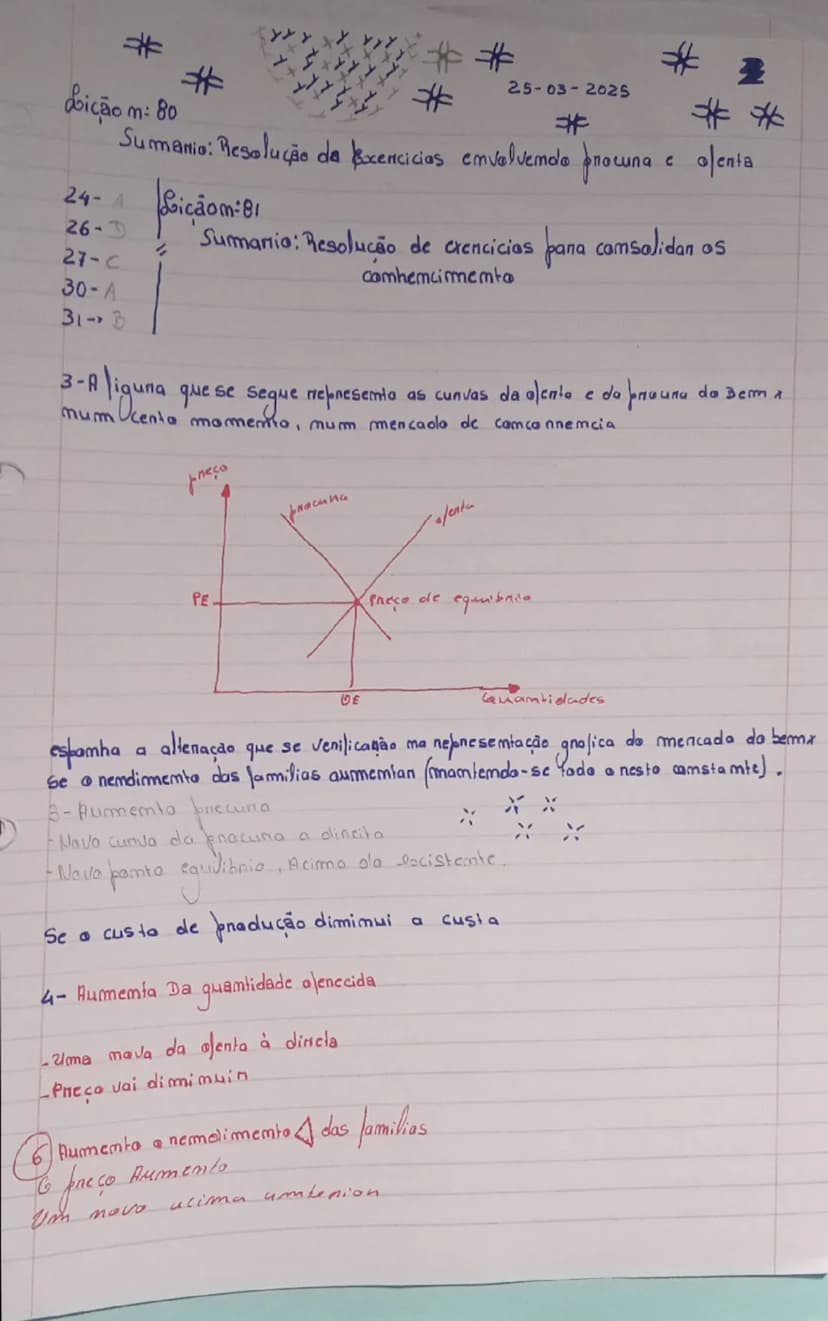 25-03-2025
Lição n: 80
Sumario: Resolução de Excercicios envolvendo procura e oferta
24- A
26- D
27- C
30- A
31-> B
Lição n: 81
Sumario: Resolução de exercicios para consolidar os
conhencimento
3-A figura que se segue representa as curvas da oferta e da procura do Bem x
num certo momento, num mercado de concorrencia
preço
procura
oferta
PE
Preço de equilibrio
QE
Quantidades
esponha a altenação que se verificação na representação grafica do mercado do bem x
Se o rendimento das familias aumentar (mantendo-se todo o resto constante).
- Aumento procura
- Nova curva da procura a direita
- Novo ponto equilibrio, Acima do excistente.
Se o custo de produção diminui a custa
4- Aumenta Da quantidade oferecida
- Uma nova da oferta à
- Preço vai diminuir
6 Aumento o rendimento das familias
preço Aumento
Um novo acima